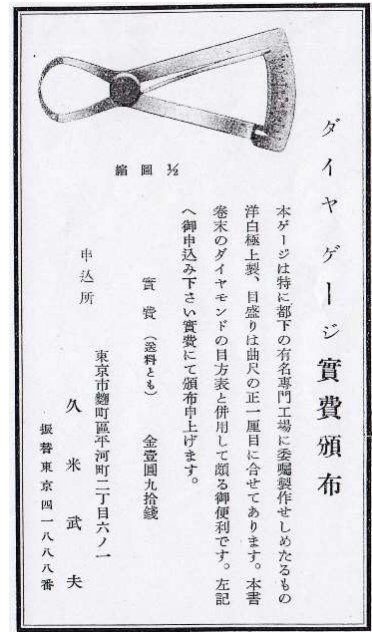 ダイヤゲージ實費頒布
本ゲージは特に都下の有名專門工場に委囑製作せしめたるもの
洋白極上製、目盛りは曲尺の正一厘目に合せてあります。本書
卷末のダイヤモンドの目方表と併用して頗る御便利です。左記
へ御申込み下さい實費にて頒布申上げます。
實費(送料とも) 金壹圓九拾錢
申込所
東京市麴町區平河町二丁目六ノ一
久米武夫
振替東京四一八八八番
½ 圖縮